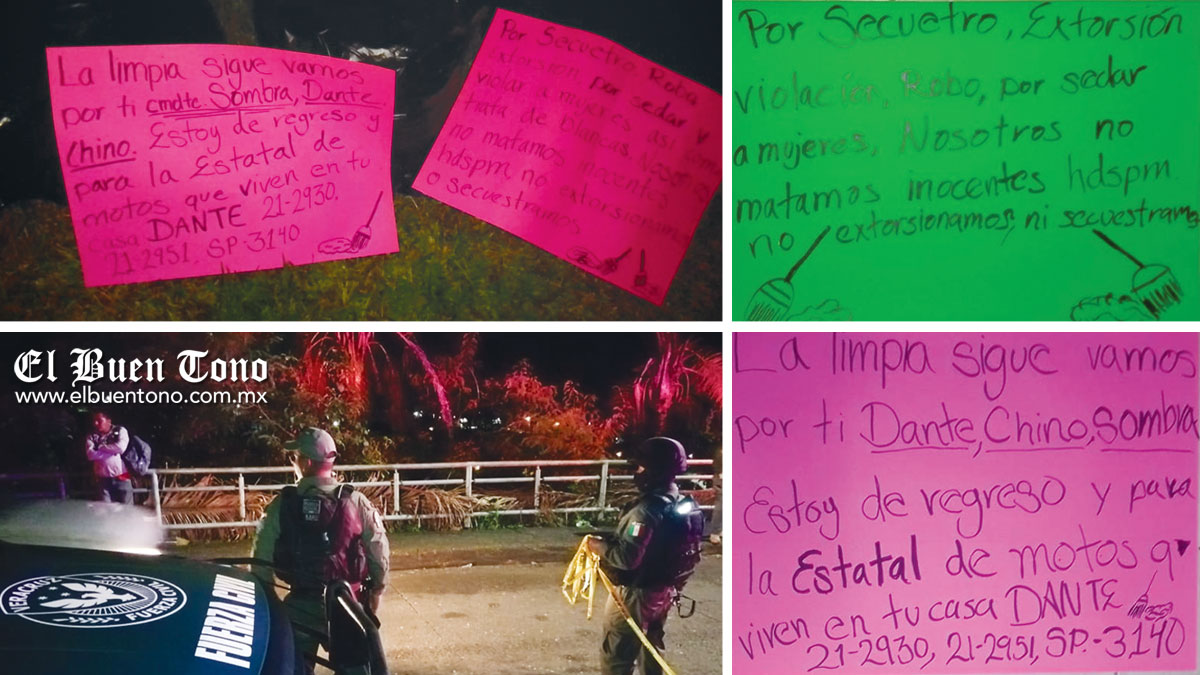 La limpia sigue vamos
por ti cmdte. Sombra, Dante
Chino. Estoy de regreso y
para la Estatal de
motos que viven en tu
casa DANTE 21-2930,
21-2951, SP.-3140
Por Secuetro, Roba
Extorsión, por sedar y
violar a mujeres así como
trata de blancas. Nosotros
no matamos inocentes
hdspm, no extorsionamos
o secuestramos
Por Secuetro, Extorsión
violación, Robo, por sedar
a mujeres, Nosotros no
matamos inocentes hdspm
no extorsionamos, ni secuestramos
El Buen Tono
www.elbuentono.com.mx
VERACRUZ
FUERZA CIVIL
FUERZA CIVIL
La limpia sigue vamos
por ti Dante, Chino, Sombra
Estoy de regreso y para
la Estatal de motos q
viven en tu casa DANTE
21-2930, 21-2951, SP.-3140